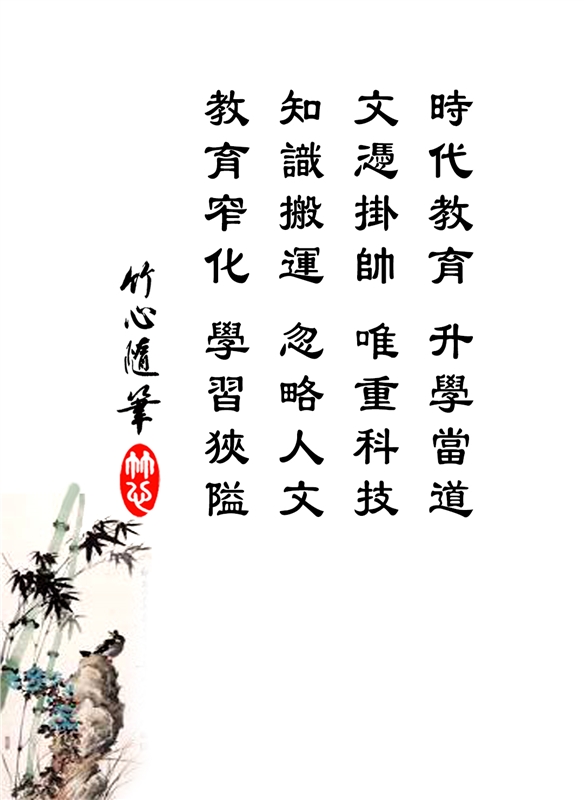 時代教育 升學當道
文憑掛帥 唯重科技
知識搬運 忽略人文
教育窄化 學習狹隘
竹心隨筆
竹心